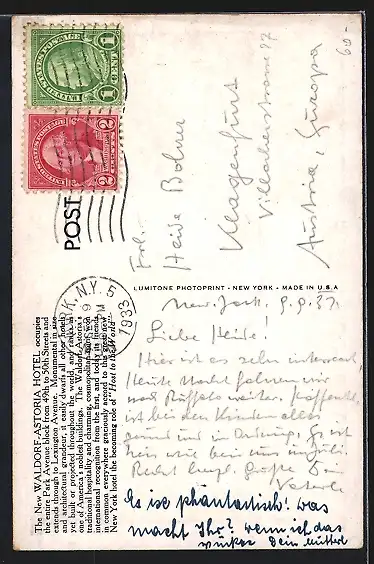 60.-
UNITED STATES POSTAGE
1 CENT 1
UNITED STATES POSTAGE
WASHINGTON
2 CENTS 2
POST
N.Y. 5
1933
Frl.
Heide Bohrer
Klagenfurt
Villacherstrasse 27
Austria, Europa
The New WALDORF-ASTORIA HOTEL occupies
the entire Park Avenue block from 49th to 50th Streets and
extends through to Lexington Avenue. Monumental in size
and architectural grandeur, it easily dwarfs all other hotels
yet built or projected throughout the world, and ranks as
one of America's noblest buildings. The Waldorf-Astoria's
traditional hospitality and charming, cosmopolitan spirit, won
international recognition from the first, and today its friends
in common everywhere graciously accord to this great new
New York hotel the becoming role of "Host to the World"
LUMITONE PHOTOPRINT - NEW YORK - MADE IN U.S.A
New York, 9.9.33.
Liebe Heide.
Hier ist es sehr interessant
Heute Nacht fahren wir
nach Buffalo weiter. Hoffentlich
ist bei den Kindern alles
gesund und in Ordnung. Es ist
Recht herzl. Grüße
Vaterl
Es ist phantastisch! Was
macht Ihr? wenn ich das
wüßte Dein Mutterl